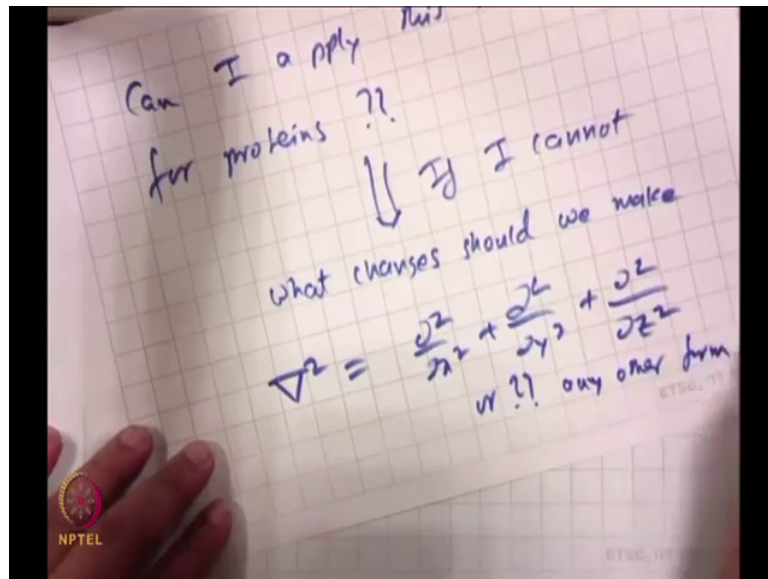 Can I apply this
for proteins ??
⇓ If I cannot
what changes should we make
∇² = ∂²/∂x² + ∂²/∂y² + ∂²/∂z²
or ?? any other form
ETSC, IIT
NPTEL
ETSC, IIT